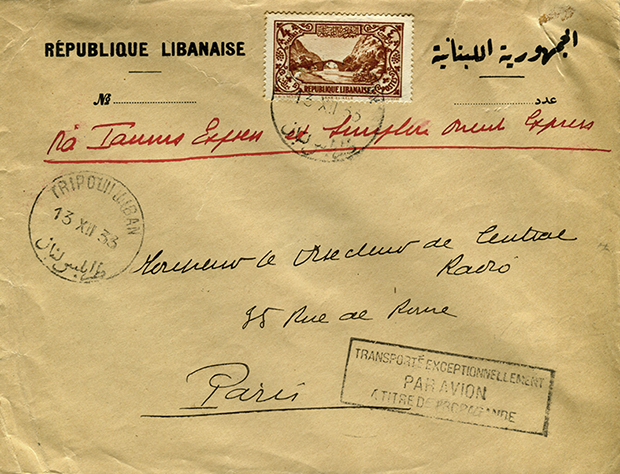 RÉPUBLIQUE LIBANAISE
الجمهورية اللبنانية
№
عدد
4
RÉPUBLIQUE LIBANAISE
13 XII 33
Via Taurus Express et Simplon Orient Express
TRIPOLI LIBAN
13 XII 33
طرابلس لبنان
Monsieur le Directeur de Central
Radio
35 Rue de Rome
Paris
TRANSPORTÉ EXCEPTIONNELLEMENT
PAR AVION
A TITRE DE PROPAGANDE